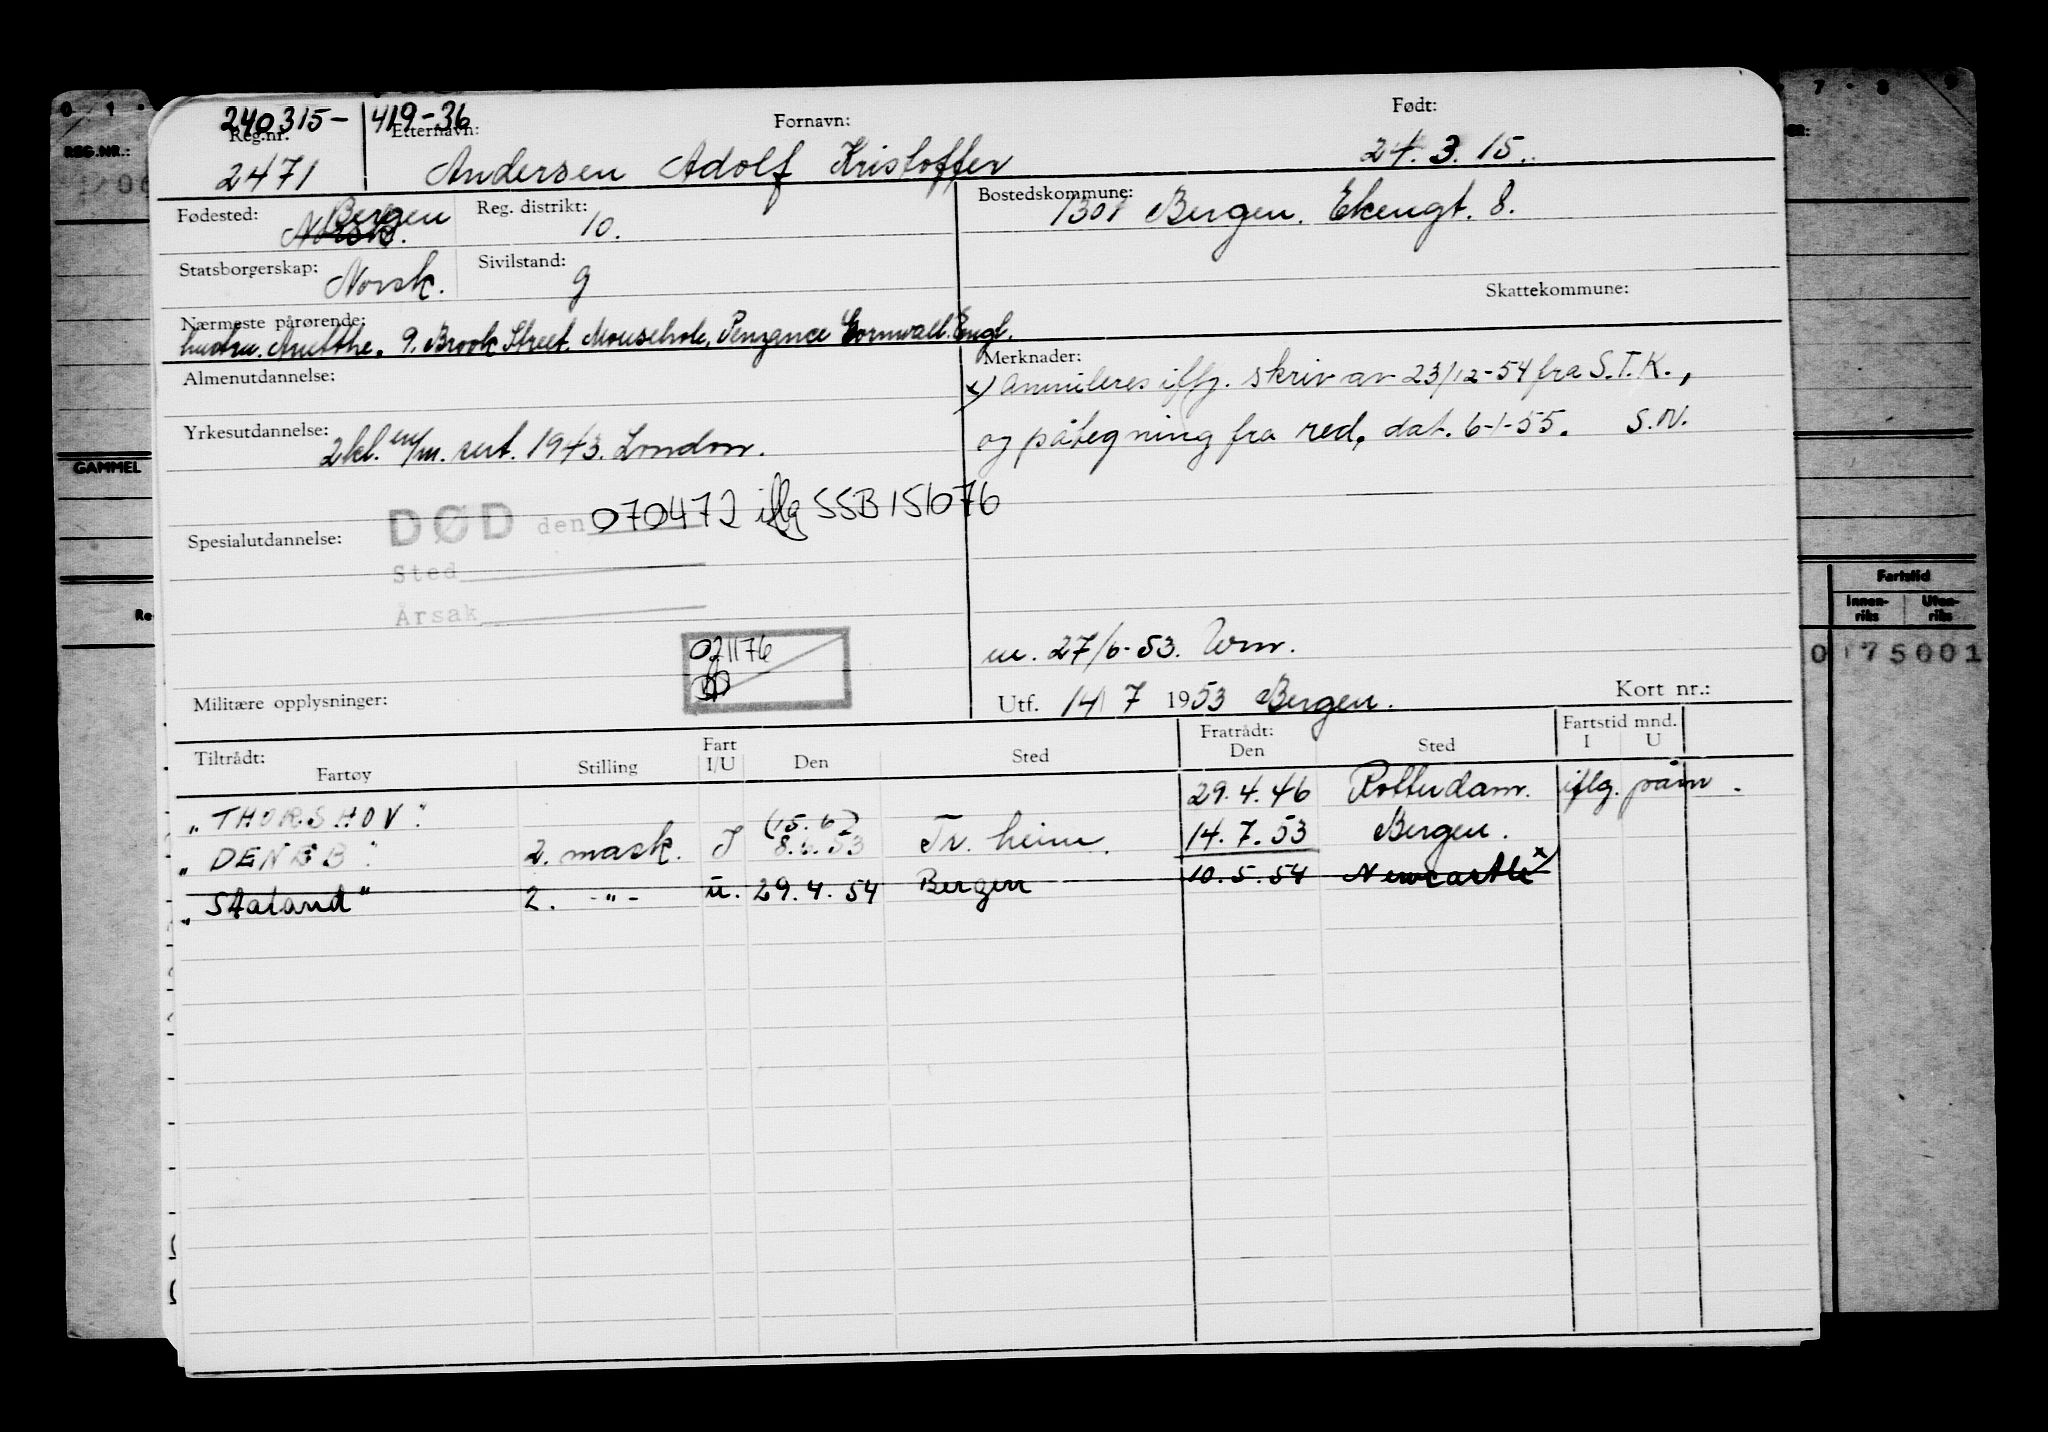 240315- 419-36
Reg.nr. Etternavn: Fornavn: Født:
2471 Andersen Adolf Kristoffer 24.3.15.
Fødested: Bergen Norsk. Reg. distrikt: 10. Bostedskommune: 1301 Bergen. Ekengt. 8.
Statsborgerskap: Norsk. Sivilstand: g
Skattekommune:
Nærmeste pårørende:
hustru. 9. Brook Street. Mousehole, Penzance Cornwall. Engl.
Almenutdannelse:
Merknader:
x) Annulleres iflg. skriv av 23/12-54 fra S.T.K.,
og påtegning fra red. dat. 6-1-55. S.N.
Yrkesutdannelse: 2 kl. m/m. sert. 1943. London.
DØD den 070472 iflg SSB 151076
Spesialutdannelse:
Sted
Årsak
021176
m. 27/6-53.
Militære opplysninger:
Utf. 14/ 7 1953 Bergen. Kort nr.:
Tiltrådt: Fratrådt: Fartstid mnd.
Fartøy Stilling Fart I/U Den Sted Den Sted I U
"THORSHOV" 29.4.46 Rotterdam. iflg. påm.
(15.6)
"DENEB" 2. mask. I 8.6.53 Tr. heim. 14.7.53 Bergen.
"Staland" 2. -"- u. 29.4.54 Bergen 10.5.54 Newcastle x)
0 1
REG.NR.:
GAMMEL
Re
7 8 9
ER:
Fartstid
Innen-riks Uten-riks
0 75001